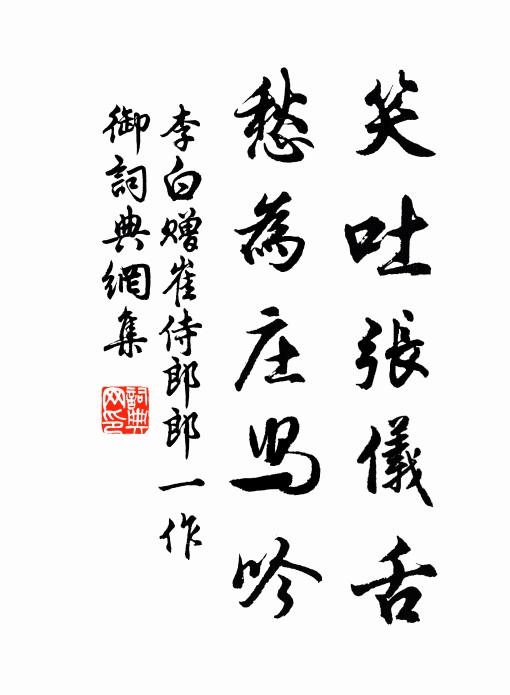 笑吐張儀舌
愁為庄舄吟
李白赠崔侍郎郎一作
御詞典網集
詞典
网印